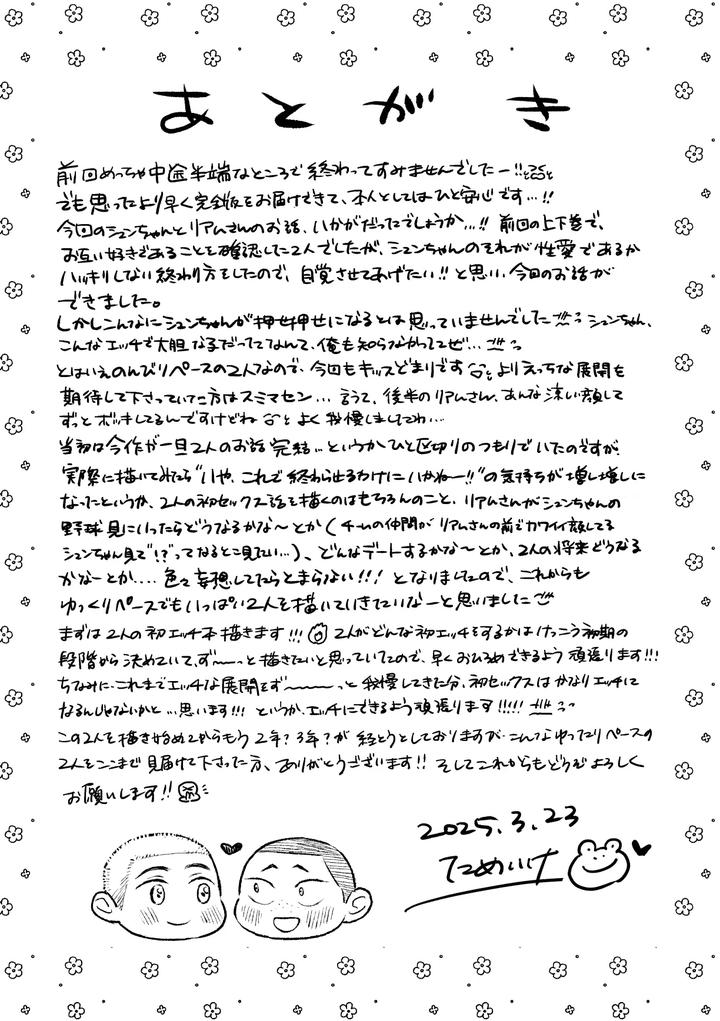 あとがき
前回めっちゃ中途半端なところで終わってすみませんでしたー!!
でも思ったより早く完全版をお届けできて、本人としてはひと安心です…!!
今回のシュンちゃんとリアムさんのお話、いかがだったでしょうか…!! 前回の上下巻で、
お互い好きであることを確認した2人でしたが、シュンちゃんのそれが性愛であるか
ハッキリしない終わり方をしたので、自覚させてあげたい!!と思い、今回のお話が
できました。
しかしこんなにシュンちゃんが押せ押せになるとは思っていませんでした シュンちゃん、
こんなエッチで大胆な子だったなんて、俺も知らなかったぜ…
とはいえのんびりペースの2人なので、今回もキッスどまりです よりえっちな展開を
期待して下さっていた方はスミマセン… 言うて、後半のリアムさん、あんな涼い顔して
ずっとボッキしてるんですけどね よく我慢しましたわ…
当初は今作が一旦2人のお話完結…というかひと区切りのつもりでいたのですが、
実際に描いてみたら"いや、これで終わらせるわけにいかねー!!"の気持ちが増し増しに
なったというか、2人の初セックス話を描くのはもちろんのこと、リアムさんがシュンちゃんの
野球見にいったらどうなるかな〜とか(チームの仲間がリアムさんの前でカワイイ顔してる
シュンちゃん見て"!?"ってなるとこ見たい…)、どんなデートするかな〜とか、2人の将来どうなる
かなーとか…. 色々妄想してたらとまらない!!! となりましたので、これからも
ゆっくりペースでもいっぱい2人を描いていきたいなーと思いました
まずは2人の初エッチ本描きます!!! 2人がどんな初エッチをするかはけっこう初期の
段階から決めていて、ず〜〜っと描きたいと思っていたので、早くおひろめできるよう頑張ります!!!
ちなみに、これまでエッチな展開をず〜〜〜〜っと我慢してきた分、初セックスはかなりエッチに
なるんじゃないかと…思います!!! というか、エッチにできるよう頑張ります!!!!!
この2人を描き始めてからもう2年?3年?が経とうとしておりますが、こんなゆったりペースの
2人をここまで見届けて下さった方、ありがとうございます!! そしてこれからもどうぞよろしく
お願いします!!
2025.3.23
ためいけ